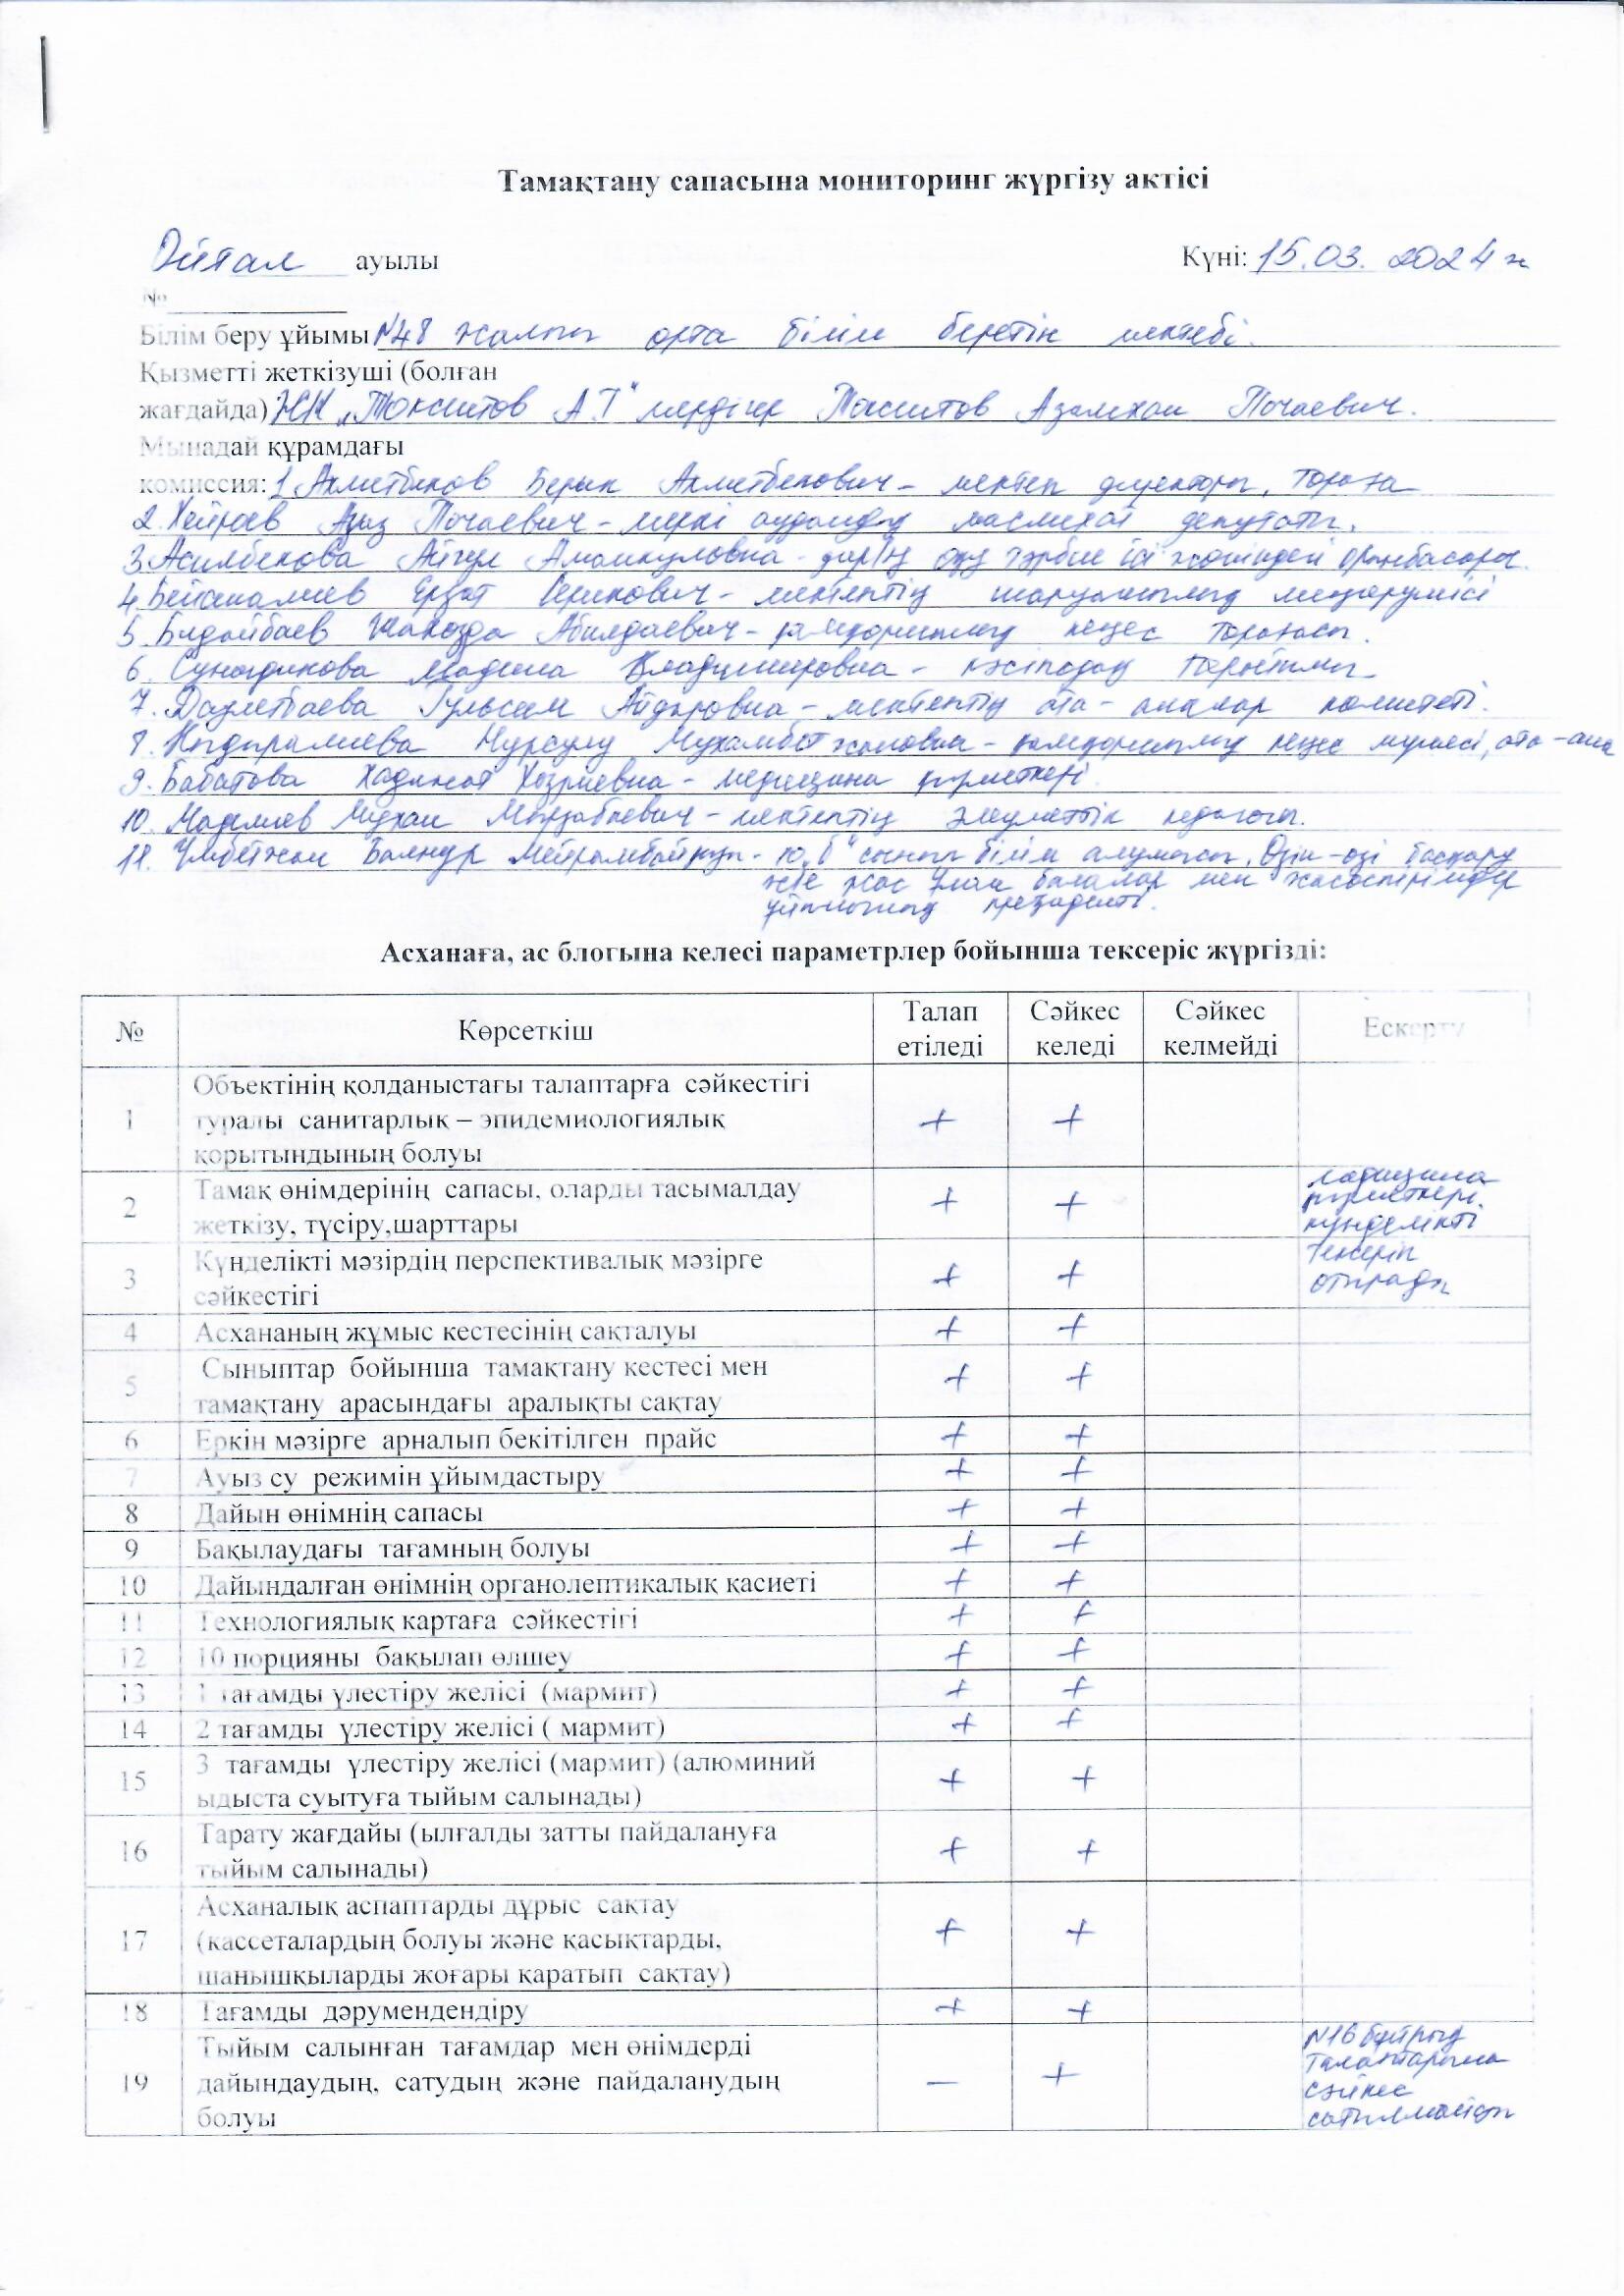 Тамақтану сапасына мониторинг жүргізу актісі
Ойтал ауылы Күні: 15.03. 2024 ж
№
Білім беру ұйымы №48 жалпы орта білім беретін мектебі.
Қызметті жеткізуші (болған
жағдайда) ЖК "Токситов А.Т" мердігер Токситов Азамхан Почаевич.
Мынадай құрамдағы
комиссия: 1. Ахметбеков Берик Ахметбекович - мектеп директоры, төраға
2. Хейров Азиз Почаевич - меркі аудандық мәслихат депутаты.
3. Асилбекова Айгул Аманкуловна - дир-ң оқу тәрбие ісі жөніндегі орынбасары.
4. Бейшалиев Ерзат Серикович - мектептің шаруашылық меңгерушісі
5. Билдайбаев Абилдаевич - қамқоршылық кеңес төрағасы.
6. Мадина Владимировна - кәсіподақ төрайымы
7. Даулетбаева Гульсим Айдаровна - мектептің ата-аналар комитеті.
8. Нурсулу Мухамбетжановна - қамқоршылық кеңес мүшесі, ата-ана
9. Бабатова Хадижат Хизриевна - медицина қызметкері
10. Мадалиев Мирзабаевич - мектептің әлеуметтік педагогы.
11. Үмбетжан Балнур Мейрамбайқызы - 10 "б" сынып білім алушысы, Өзін-өзі басқару
және жас ұлан балалар мен жасөспірімдер
ұйымының президенті.
Асханаға, ас блогына келесі параметрлер бойынша тексеріс жүргізді:
№ Көрсеткіш Талап етіледі Сәйкес келеді Сәйкес келмейді Ескерту
1 Объектінің қолданыстағы талаптарға сәйкестігі
туралы санитарлық – эпидемиологиялық + +
қорытындының болуы
2 Тамақ өнімдерінің сапасы, оларды тасымалдау + + медицина
жеткізу, түсіру,шарттары қызметкері күнделікті
3 Күнделікті мәзірдің перспективалық мәзірге + + тексеріп
сәйкестігі отырады
4 Асхананың жұмыс кестесінің сақталуы + +
5 Сыныптар бойынша тамақтану кестесі мен + +
тамақтану арасындағы аралықты сақтау
6 Еркін мәзірге арналып бекітілген прайс + +
7 Ауыз су режимін ұйымдастыру + +
8 Дайын өнімнің сапасы + +
9 Бақылаудағы тағамның болуы + +
10 Дайындалған өнімнің органолептикалық қасиеті + +
11 Технологиялық картаға сәйкестігі + +
12 10 порцияны бақылап өлшеу + +
13 1 тағамды үлестіру желісі (мармит) + +
14 2 тағамды үлестіру желісі ( мармит) + +
15 3 тағамды үлестіру желісі (мармит) (алюминий + +
ыдыста суытуға тыйым салынады)
16 Тарату жағдайы (ылғалды затты пайдалануға + +
тыйым салынады)
17 Асханалық аспаптарды дұрыс сақтау
(кассеталардың болуы және қасықтарды, + +
шанышқыларды жоғары қаратып сақтау)
18 Тағамды дәрумендендіру + +
19 Тыйым салынған тағамдар мен өнімдерді №16 бұйрық
дайындаудың, сатудың және пайдаланудың — + талаптарына сәйкес
болуы сатылмайды